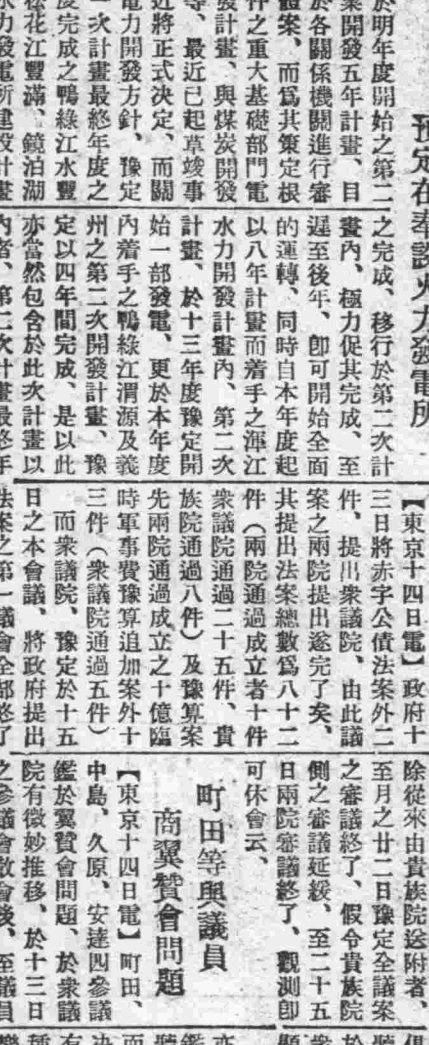 預定在奉設火力發電所
於明年度開始之第二
案開發五年計畫、目
於各關係機關進行審
體案、而爲其策定根
件之重大基礎部門電
發計畫、與煤炭開發
等、最近已起草竣事
近將正式決定、而關
電力開發方針、豫定
一次計畫最終年度之
度完成之鴨綠江水豐
松花江豐滿、鏡泊湖
水力發電所建設計畫
之完成、移行於第二次計
畫內、極力促其完成、至
遲至後年、卽可開始全面
的運轉、同時自本年度起
以八年計畫而着手之渾江
水力開發計畫內、第二次
計畫、於十三年度豫定開
始一部發電、更於本年度
內着手之鴨綠江渭源及義
州之第二次開發計畫、豫
定以四年間完成、是以此
亦當然包含於此次計畫以
內者、第二次計畫最終年
【東京十四日電】政府十
三日將赤字公債法案外二
件、提出衆議院、由此議
案之兩院提出遂完了矣、
其提出法案總數爲八十二
件（兩院通過成立者十件
衆議院通過二十五件、貴
族院通過八件）及豫算案
先兩院通過成立之十億臨
時軍事費豫算追加案外十
三件（衆議院通過五件）
而衆議院、豫定於十五
日之本會議、將政府提出
法案之第一議會全部終了
除從來由貴族院送附者、
至月之廿二日豫定全議案
之審議終了、假令貴族院
側之審議延緩、至二十五
日兩院審議終了、觀測卽
可休會云、
町田等與議員
商翼贊會問題
【東京十四日電】町田、
中島、久原、安達四參議
鑑於翼贊會問題、於衆議
院有微妙推移、於十三日
之參議會散會後、至議員